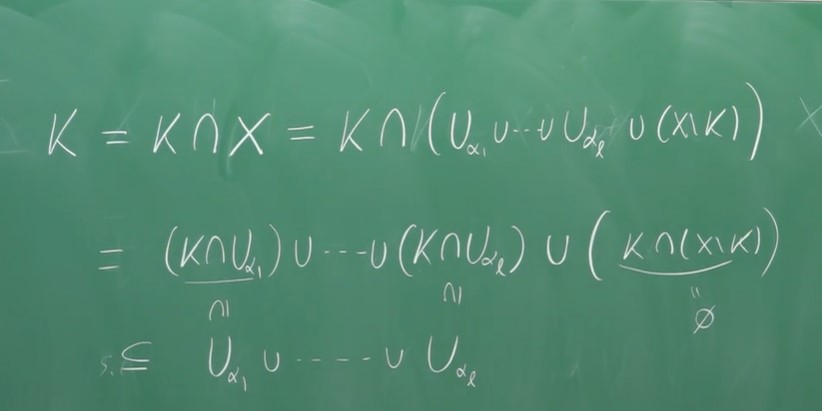 K = K ∩ X = K ∩ (U_α₁ ∪ ·· ∪ U_αℓ ∪ (X\K))
= (K∩U_α₁) ∪ ··· ∪ (K∩U_αℓ) ∪ (K∩(X\K))
∩| ∩| "
∅
⊆ U_α₁ ∪ ····· ∪ U_αℓ